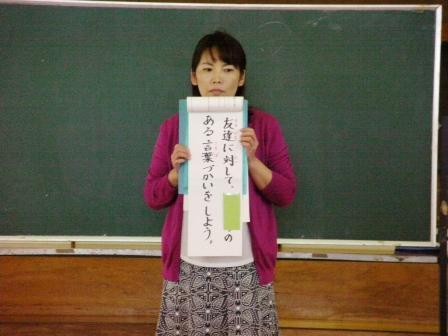 友達に対して、の
ある言葉づかいをしよう。